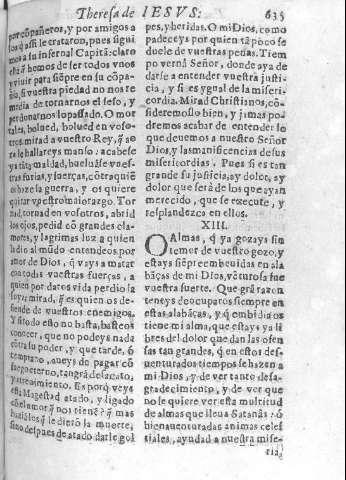 Theresa de IESVS. 635
por cõpañeros, y por amigos a
los q̃ assi le trataron, pues sigui
mos a su infernal Capitã: claro
està q̃ hemos de ser todos vnos
y viuir para siẽpre en su cõpa-
ñia, si vuestra piedad no nos re
media de tornarnos el seso, y
perdonarnos lo passado. O mor
tales, bolued, bolued en voso-
tros, mirad a vuestro Rey, q̃ ao
ra le hallareys manso: acabese
ya tãta maldad, bueluãse vues-
tras furias, y fuerças, cõtra quiẽ
os hize la guerra, y os quiere
quitar vuestro maiorazgo. Tor
nad, tornad en vosotros, abrid
los ojos, pedid cõ grandes cla-
mores, y lagrimas luz a quien
la dio al mũdo entendeos, por
amor de Dios, q̃ vays a matar
con todas vuestras fuerças, a
quien por daros vida perdio la
suya; mirad, q̃ es quien os de-
fiende de vuestros enemigos.
Y si todo esto no basta, basteos
conocer, que no podeys nada
cõtra su poder, y que tarde, ò
temprano, aueys de pagar cõ
fuego eterno, tan grã desacato,
y atreuimiento. Es porq̃ veys
essa Magestad atado, y ligado
cõ el amor q̃ nos tiene? q̃ mas
haziã los q̃ le dierõ la muerte,
sino despues de atado darle gol
pes, y heridas. O mi Dios, como
padeceys por quien tã poco se
duele de vuestras penas. Tiem
po vernà Señor, donde aya de
darse a entender vuestra justi-
cia, y si es ygual de la miseri-
cordia. Mirad Christianos, cõ-
sideremoslo bien, y jamas po-
dremos acabar de entender lo
que deuemos a nuestro Señor
Dios, y las manificencias de sus
misericordias. Pues si es tan
grande su justicia, ay dolor, ay
dolor que serà de los que ayan
merecido, que se execute, y
resplandezca en ellos.
XIII.
O Almas, q̃ ya gozays sin
temor de vuestro gozo, y
estays siẽpre embeuidas en ala
bãças de mi Dios, vẽturosa fue
vuestra suerte. Que grã razon
teneys de ocuparos siempre en
estas alabãças, y q̃ embidia os
tiene mi alma, que estays ya li
bres del dolor que dan las ofen
sas tan grandes, q̃ en estos des-
uenturados tiempos se hazen a
mi Dios, y de ver tanto desa-
gradecimiento, y de ver que
no se quiere ver esta multitud
de almas que lleua Satanàs: ò
bienauenturadas animas celes
tiales, ayudad a nuestra mise-
ria,